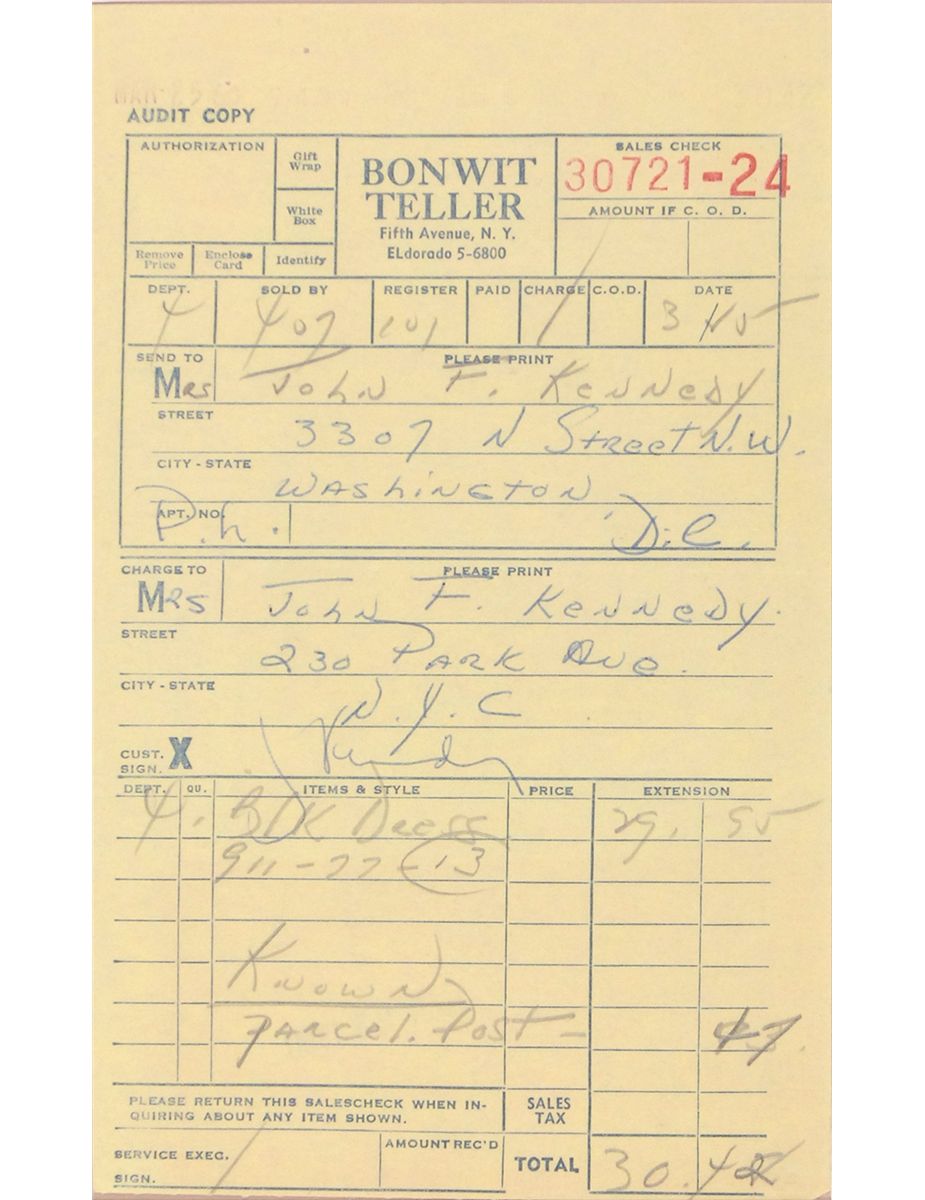 AUDIT COPY
AUTHORIZATION
Gift
Wrap
White
Box
Remove
Price
Enclose
Card
Identify
BONWIT
TELLER
Fifth Avenue, N. Y.
ELdorado 5-6800
SALES CHECK
30721-24
AMOUNT IF C. O. D.
DEPT. SOLD BY REGISTER PAID CHARGE C.O.D. DATE
4 407 101 /
SEND TO PLEASE PRINT
Mrs John F. Kennedy
STREET
3307 N Street N.W.
CITY - STATE
Washington
APT. NO.
P.h. D.C.
CHARGE TO PLEASE PRINT
Mrs John F. Kennedy.
STREET
230 Park Ave.
CITY - STATE
N.Y.C
CUST. X
SIGN.
DEPT. QU. ITEMS & STYLE PRICE EXTENSION
4 Blk Dress 29. 95
911-77-13
Known
Parcel. Post - 47
PLEASE RETURN THIS SALESCHECK WHEN IN-
QUIRING ABOUT ANY ITEM SHOWN.
SALES
TAX
SERVICE EXEC.
SIGN.
AMOUNT REC'D
TOTAL 30.42